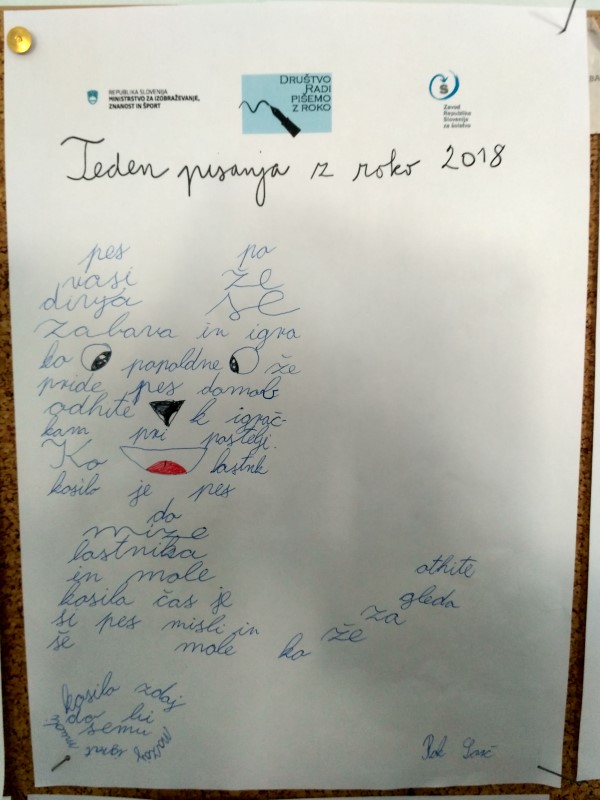 REPUBLIKA SLOVENIJA
MINISTRSTVO ZA IZOBRAŽEVANJE,
ZNANOST IN ŠPORT
DRUŠTVO
RADI
PIŠEMO
Z ROKO
Š
Zavod
Republike
Slovenije
za šolstvo
Teden pisanja z roko 2018
pes po
vasi že
divja se
zabava in igra
ko popoldne že
pride pes domov
odhite k igrač-
kam pri postelji.
Ko lastnk
kosilo je pes
do
mize
lastnika
in mole
kosilo čas je
si pes misli in
še mole ko že za gleda othite
kosilo zdaj
da bi
semu
Rok